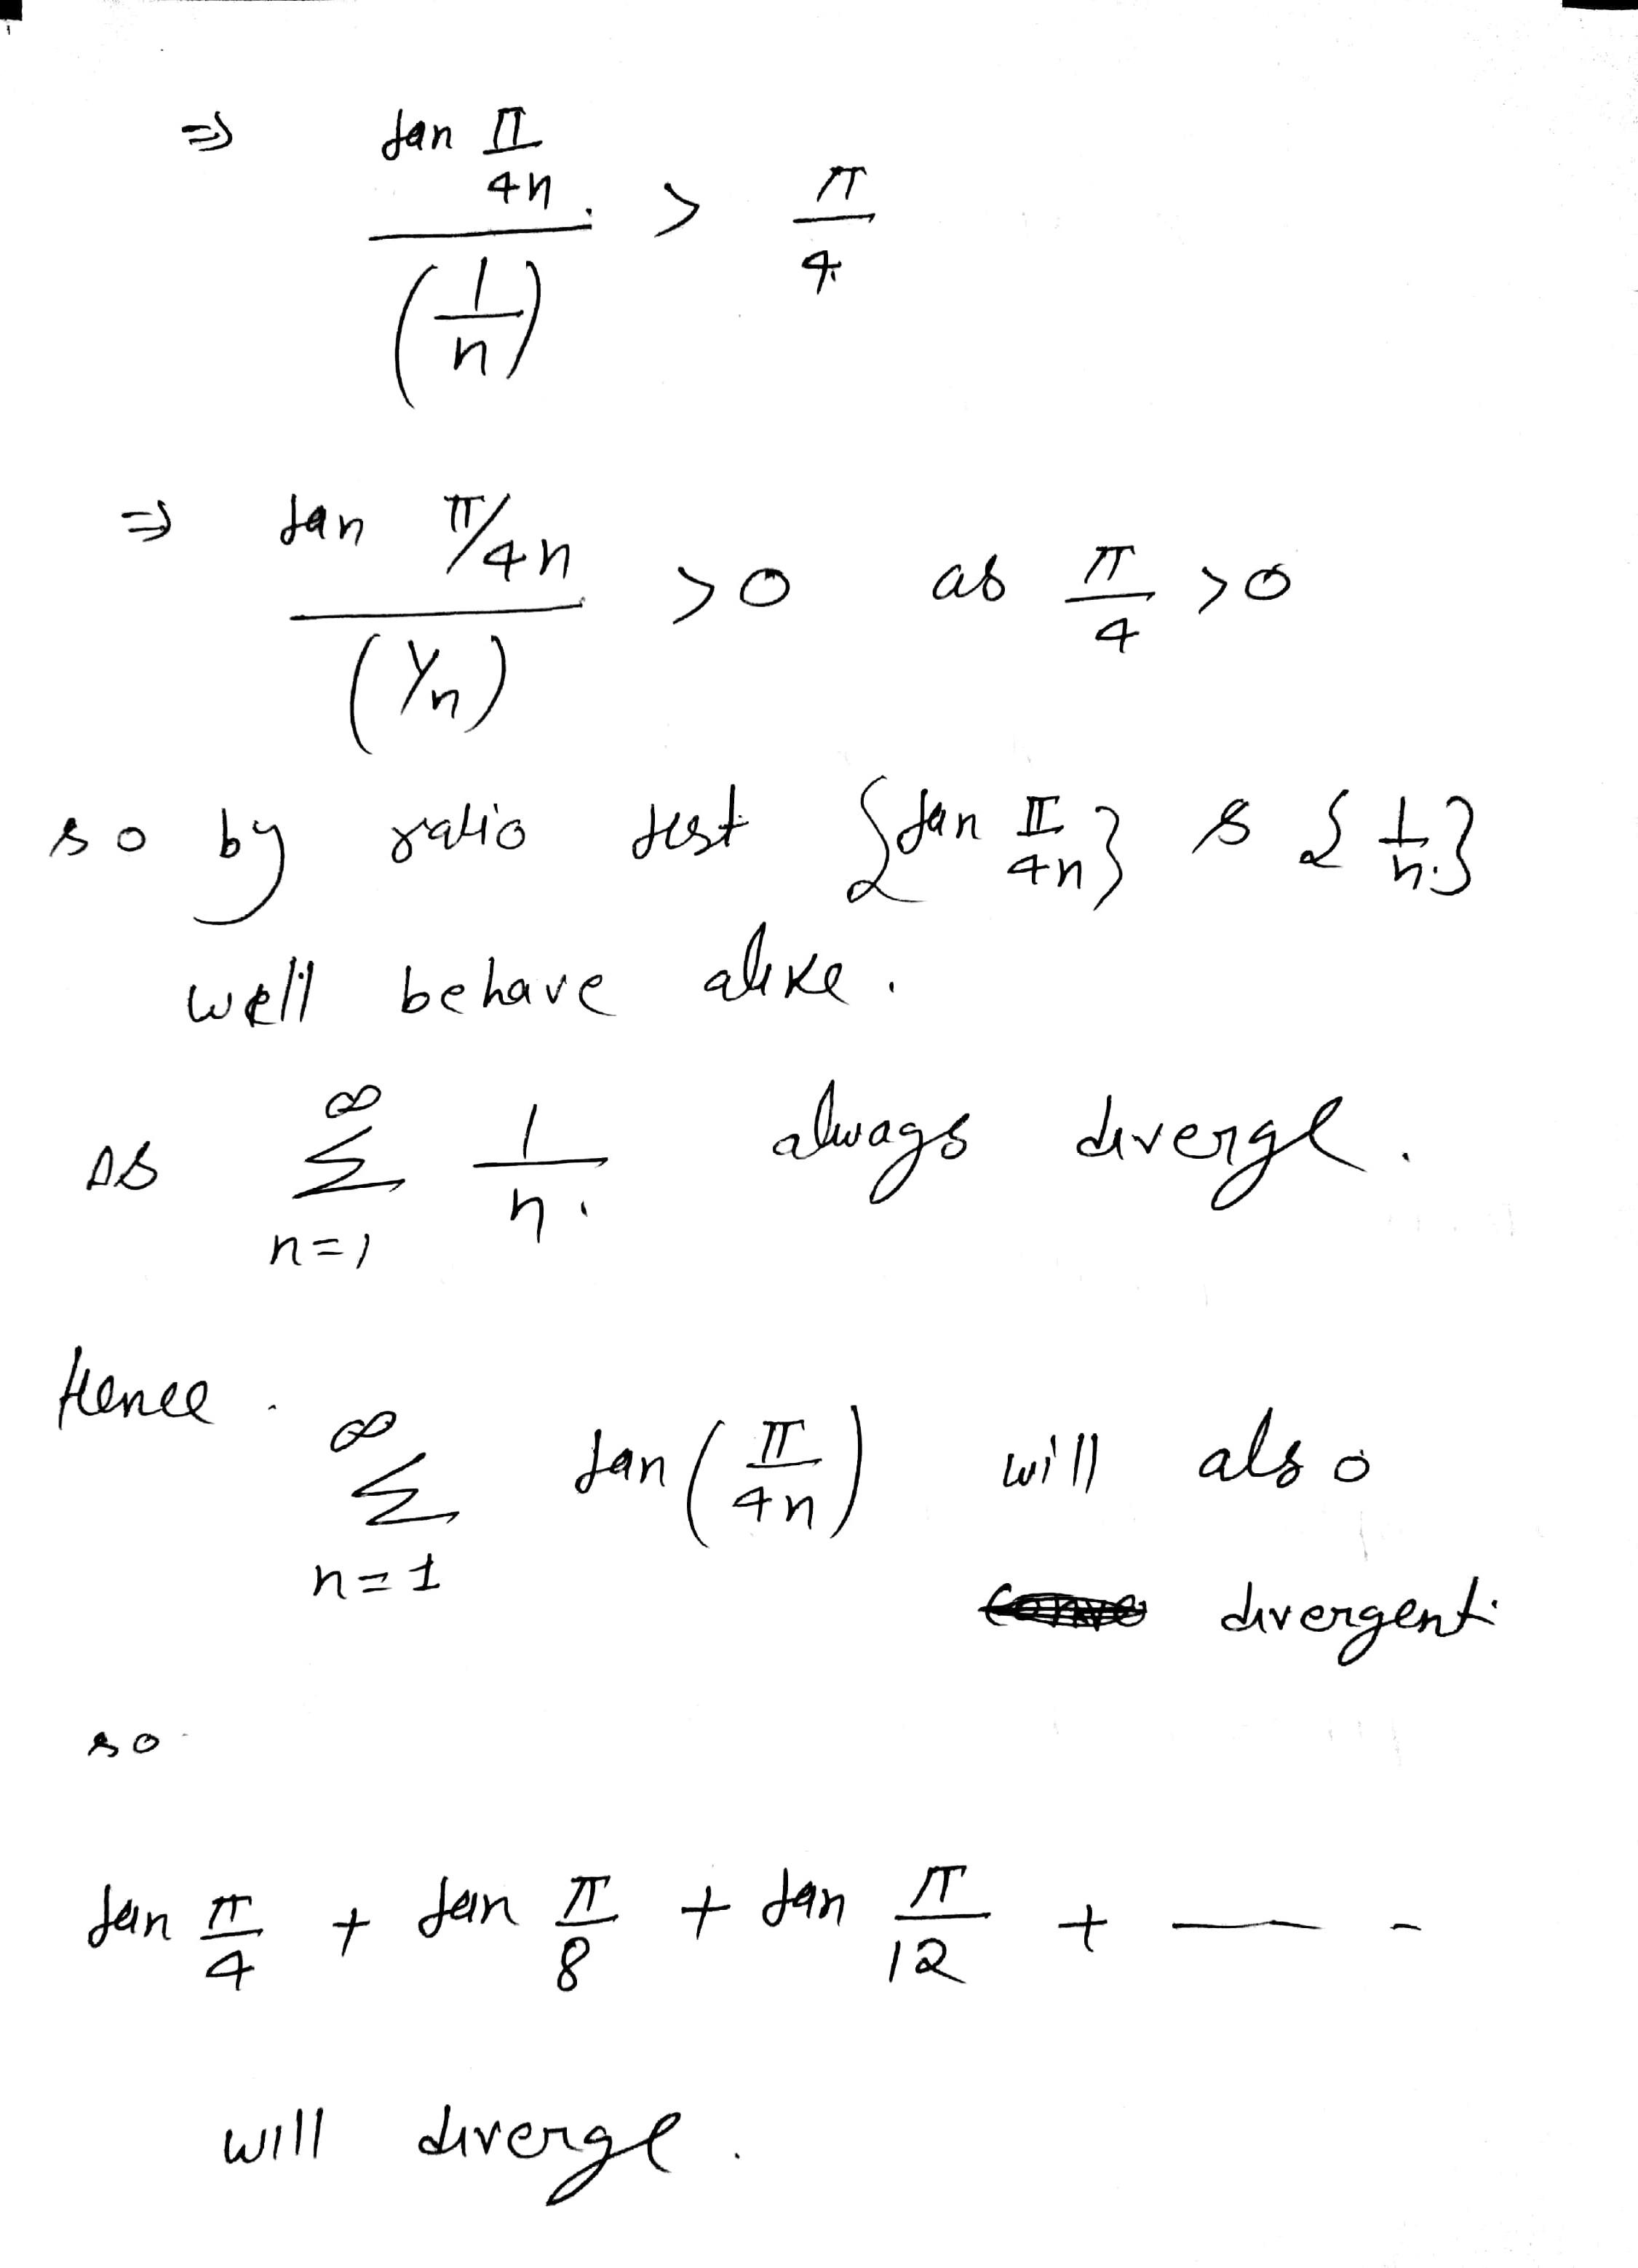 ⇒ tan π/4n / (1/n) > π/4
⇒ tan π/4n / (1/n) >0 as π/4 >0
so by ratio test {tan π/4n} & {1/n}
well behave alike.
as ∞ Σ n=1 1/n always diverge.
Hence
∞ Σ n=1 tan (π/4n) will also
divergent
so
tan π/4 + tan π/8 + tan π/12 + — -
will diverge.